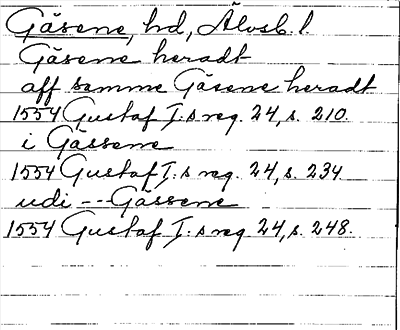 Gäsene, hd, Älvsb. l.
Gäsene heradt
aff samme Gäsene heradt
1554 Gustaf I:s reg. 24, s. 210.
i Gässene
1554 Gustaf I:s reg. 24, s. 234
udi -- Gässene
1554 Gustaf I:s reg 24, s. 248.